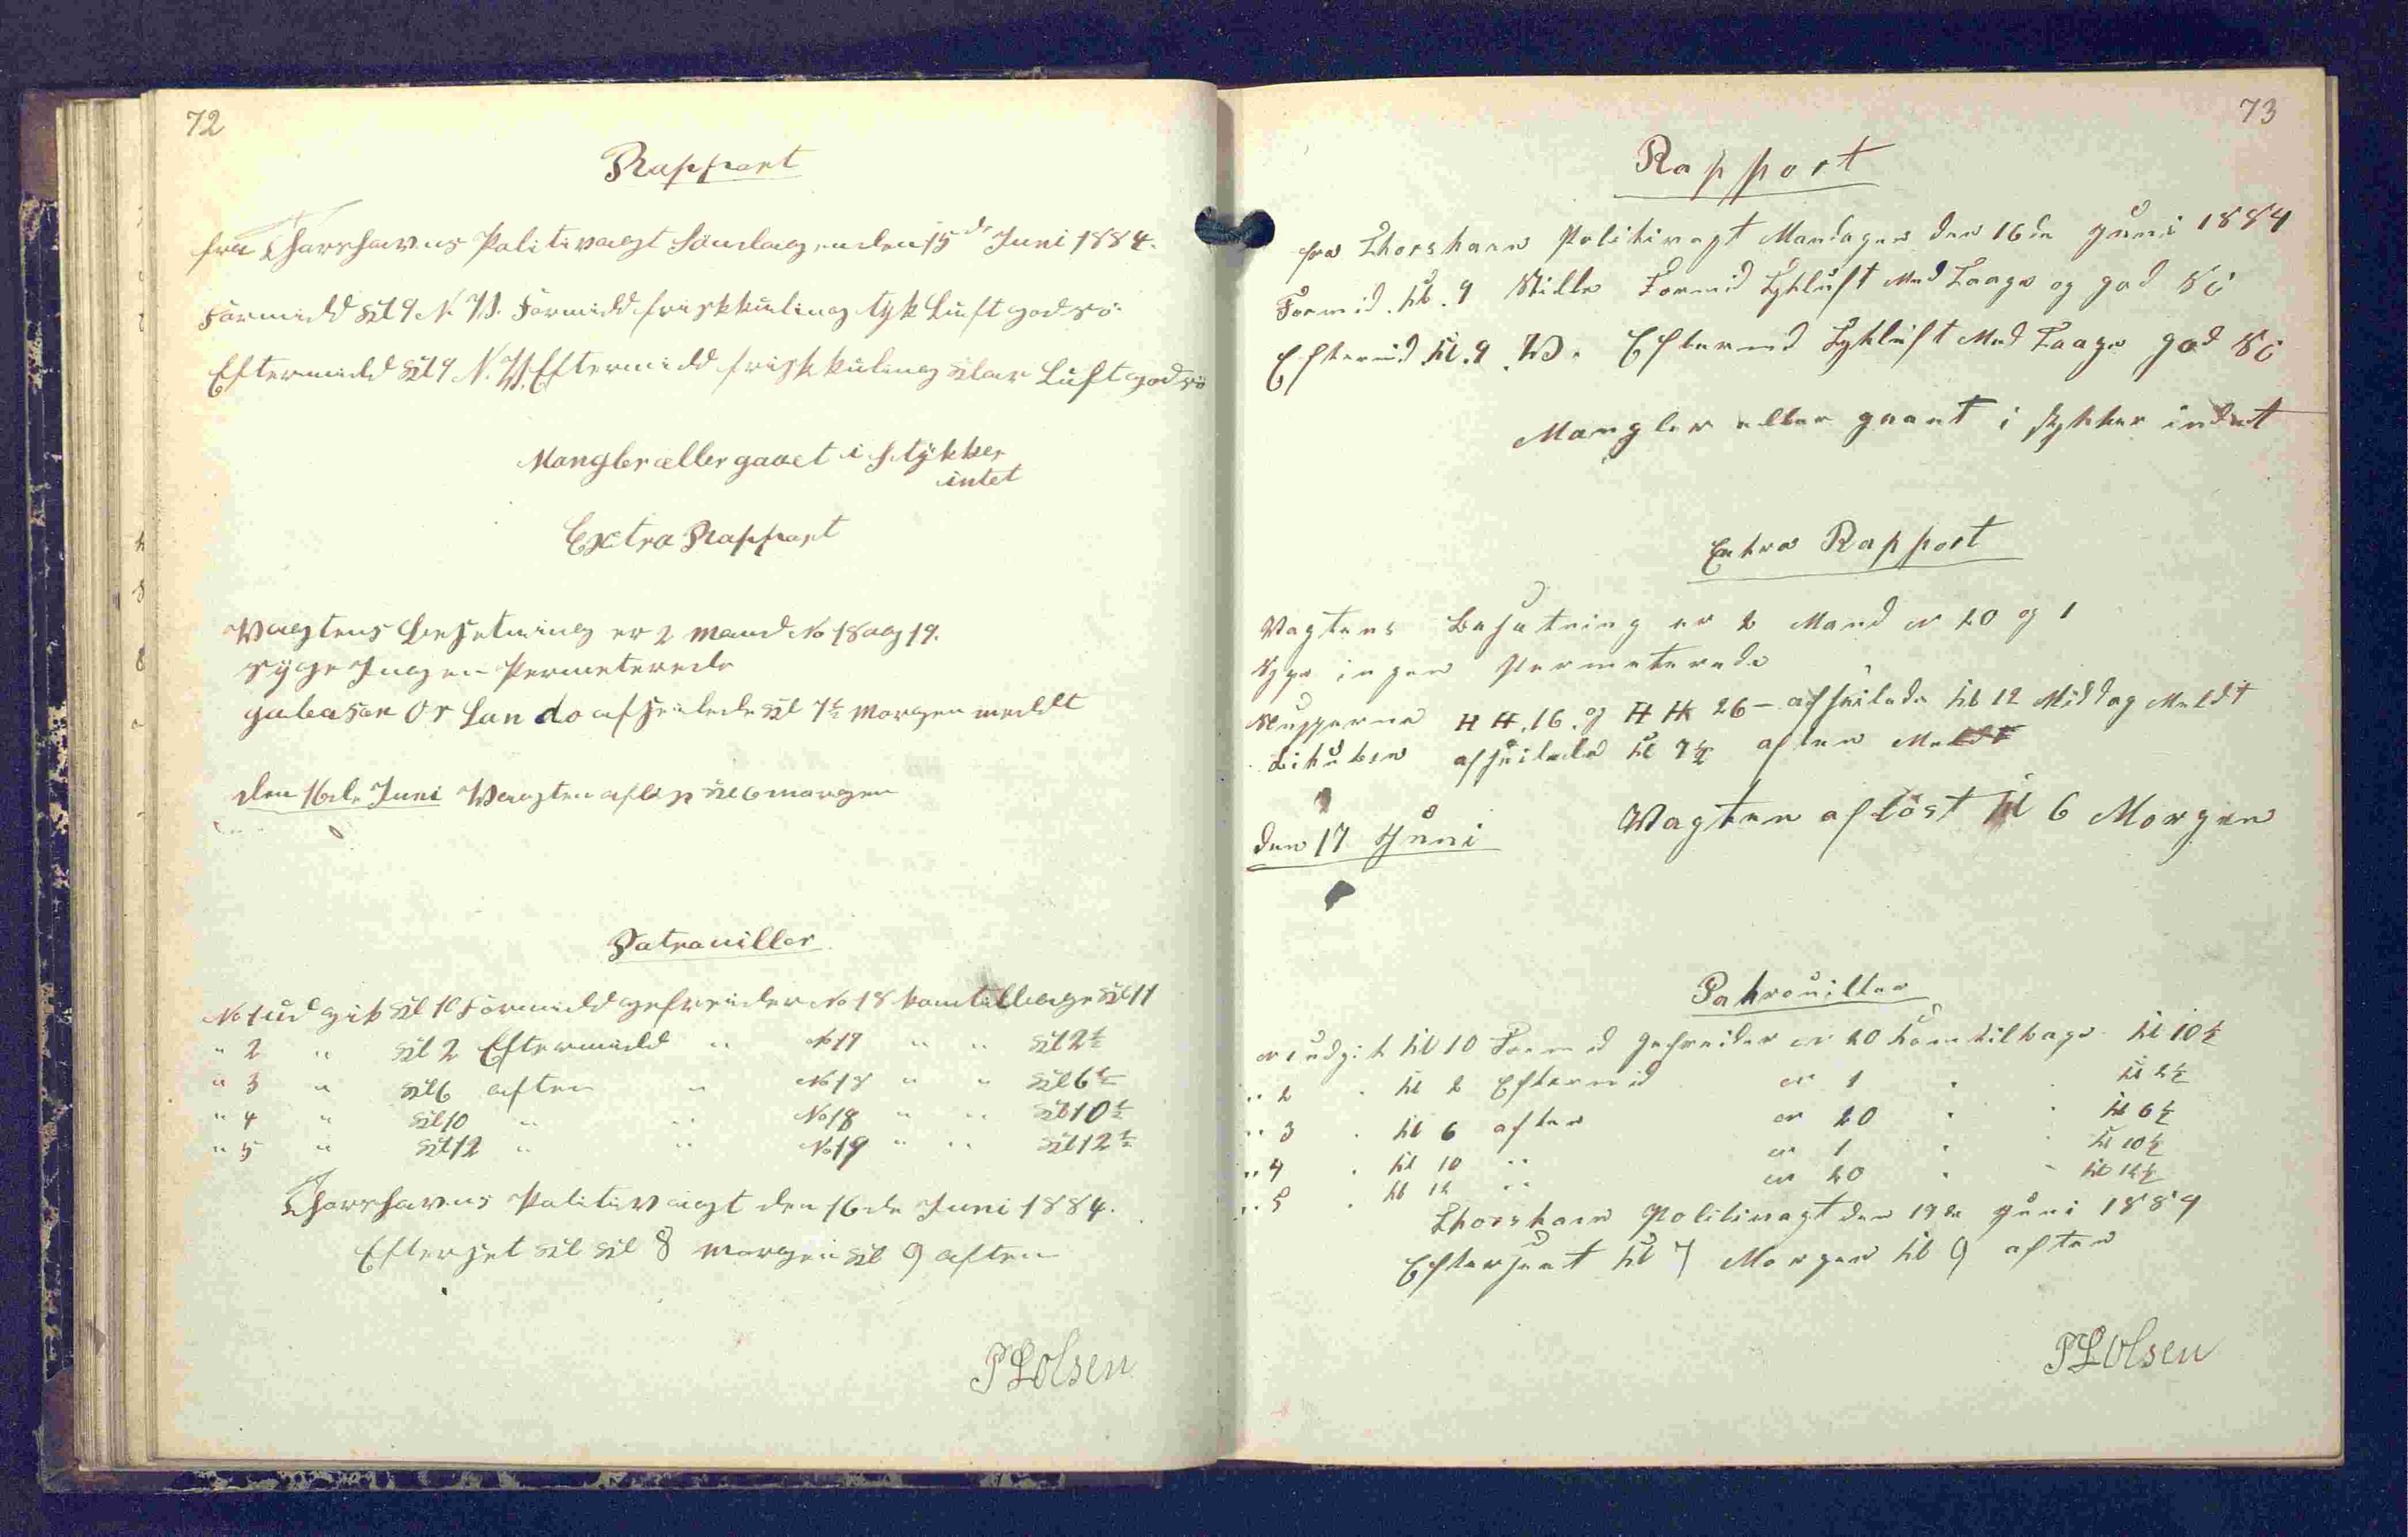 72
Rapport
fra Thorshavns Politivagt Söndagen den 15de Juni 1884.
Formidd Kl 9 N. W. Formidd frisk kuling tyk Luft god sö
Eftermidd Kl 9 N. W. Eftermidd frisk kuling klar Luft god sö
Mangler eller gaaet i stykker
intet
Extra Rapport
Vagtens Besetning er 2 mand No 18 og 19.
syge Ingen Permeterede
galeasen Or Lan do afseilede Kl 7½ Morgen meldt
den 16de Juni Vagten aflöst Kl 6 morgen
Patrouiller
No 1 udgik Kl 10 Formidd gefreider No 18 kom tilbage Kl 11
" 2 " Kl 2 Eftermidd " No 19 " " Kl 2½
" 3 " Kl 6 aften " No 18 " " Kl 6½
" 4 " Kl 10 " " No 18 " " Kl 10½
" 5 " Kl 12 " " No 19 " " Kl 12½
Thorshavns Politivagt den 16de Juni 1884.
Efterset Kl Kl 8 morgen Kl 9 aften
P L Olsen
73
Rapport
fra Thorshavn Politivagt Mandagen den 16de Juni 1884
Formid. Kl. 9 Stille Formid Tykluft Med Taage og god Sö
Eftermid Kl. 9 W. Eftermid Tykluft Med Taage god Sö
Mangler eller gaaet i stykker indet
Extra Rapport
Vagtens Besetning er 2 Mand N 20 og 1
Syge ingen Permeterede
Slupperne H H. 16. og H H 26 - afseilede Kl 12 Middag Meldt
afseilede Kl 7½ aften Meldt
den 17 Juni Vagten aflöst Kl 6 Morgen
Patrouiller
N 1 udgik Kl 10 Formid gefreider N 20 kom tilbage Kl 10½
" 2 " Kl 2 Eftermid N 1 " " Kl 2½
" 3 " Kl 6 aften N 20 " " Kl 6½
" 4 " Kl 10 " N 1 " " Kl 10½
" 5 " Kl 12 " N 20 " " Kl 12½
Thorshavn Politivagt den 17de Juni 1884
Efterseet Kl 7 Morgen Kl 9 aften
P L Olsen